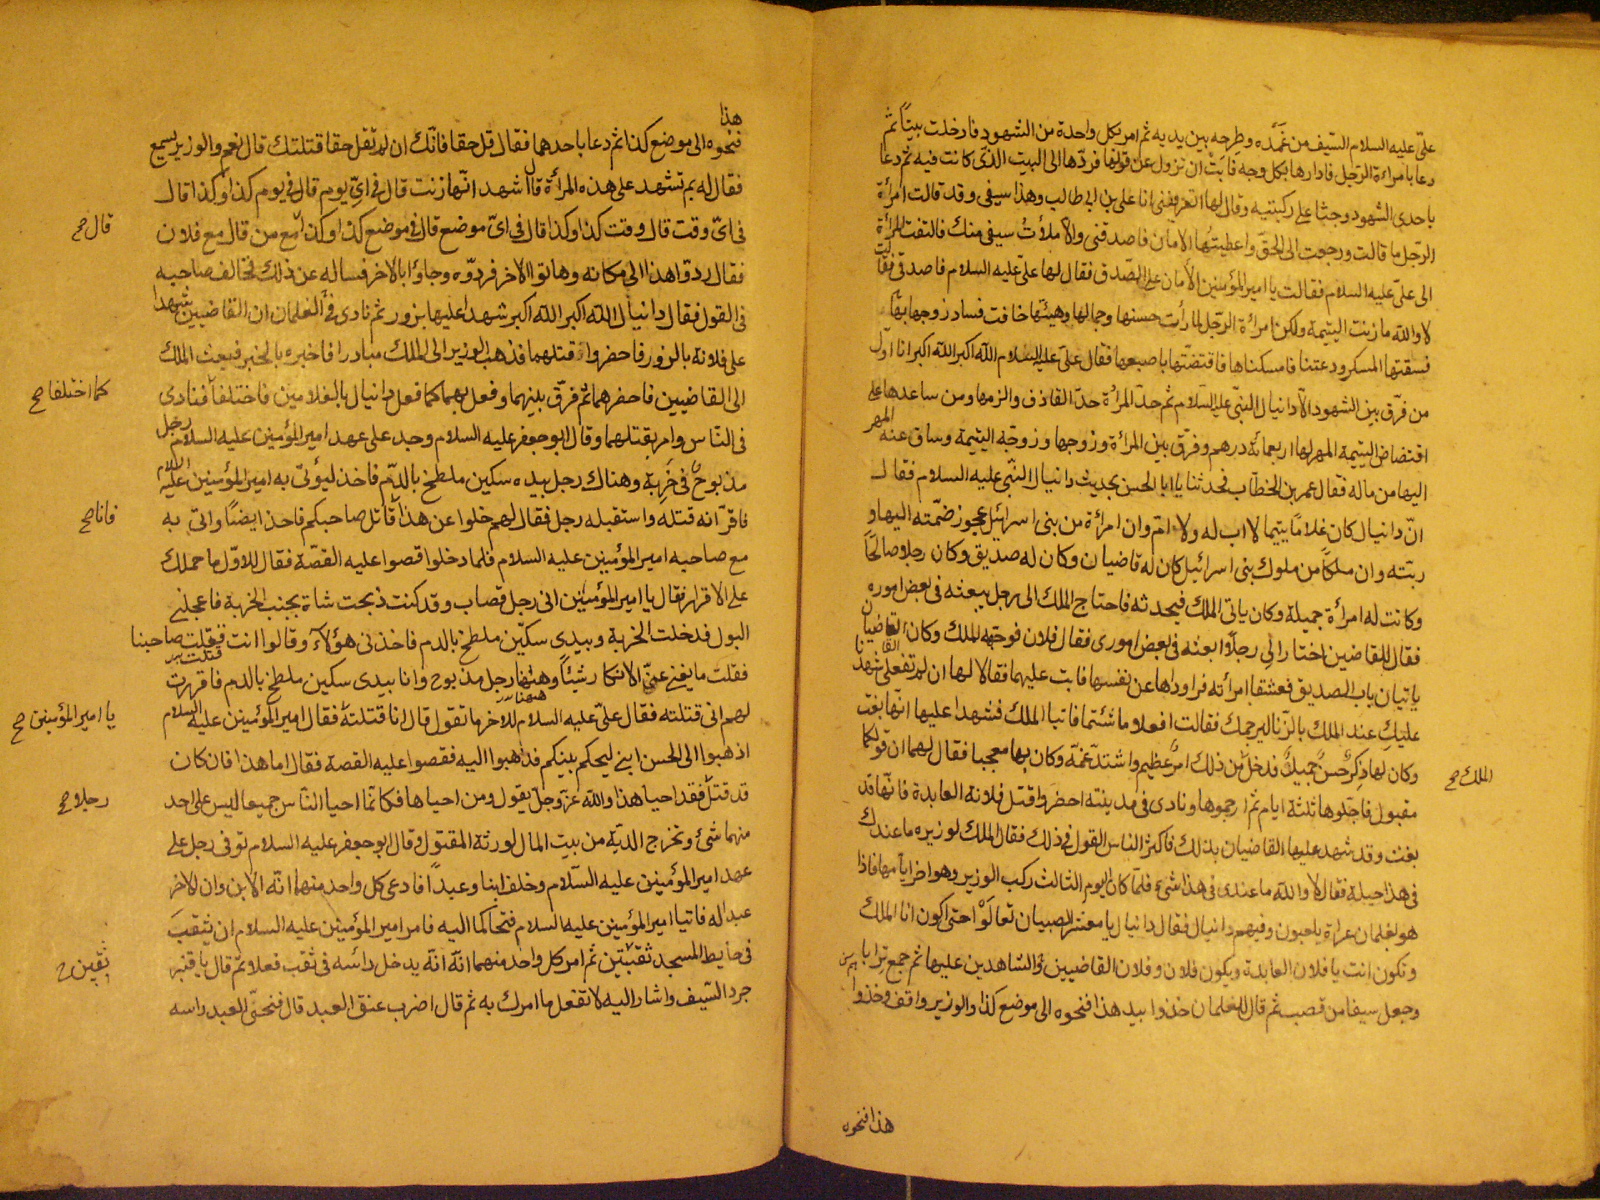 علىّ عليه السلام السّيف من غمده وطرحه بين يديه ثم امر بكل واحدة من الشهود فادخلت بيتًا ثم
دعا بامراءة الرّجل فادارها بكل وجه فابت ان تزول عن قولها فردّها الى البيت الذى كانت فيه ثم دعا
باحدى الشهود وجثا على ركبتيه وقال لها اتعرفننى انا على بن ابى طالب وهذا سيفى وقد قالت امرأة
الرّجل ما قالت ورجعت الى الحق واعطيتها الامان فاصدقنى والا ملأتُ سيفى منك فالتفت المرأة
الى علىّ عليه السلام فقالت يا امير المؤمنين الأمان على الصّدق فقال لها علىّ عليه السلام فاصدقى فقالت
لا والله ما زنت اليتيمة ولكن امرأة الرّجل لما رأت حسنها وجمالها وهيئتها خافت فساد زوجها بها
فسقتها المسكر ودعتنا فامسكناها فاقتضّتها باصبعها فقال علىّ عليه السلام الله اكبر الله اكبر انا اوّل
من فرّق بين الشهود الّا دانيال النبى عليه السلام ثم حدّ المرأة حدّ القاذف والزمها ومن ساعدها على
اقتضاض اليتيمة المهر لها اربعمائة درهم وفرّق بين المرأة وزوجها وزوجّه اليتيمة وساق عنه المهر
اليها من ماله فقال عمر بن الخطّاب فحدثنا يا ابا الحسن بحديث دانيال النّبى عليه السلام فقال
انّ دانيال كان غلامًا يتيما لا اب له ولا امّ وان امرأة من بنى اسرائيل عجوز ضمّته اليها و
ربّته وان ملكًا من ملوك بنى اسرائيل كان له قاضيان وكان له صديق وكان رجلا صالحًا
وكانت له امرأة جميلة وكان ياتى الملك فيحدثه فاحتاج الملك الى رجل يبعثه فى بعض اموره
فقال للقاضين اختارا لى رجلًا ابعثه فى بعض امورى فقال فلان فوجّهه الملك وكان القاضيان
ياتيان باب الصديق فعشقا امرأته فراوداها عن نفسها فابت عليهما فقالا لها ان لم تفعلى شهدنا
عليكِ عند الملك بالزّنا ليرجمك فقالت افعلا ما شئتما فاتيا الملك فشهدا عليها انّها بغت
وكان لها ذكرٌ حسنٌ جميلٌ فدخل من ذلك امر عظيم واشتدّ غمّه وكان بها معجبا فقال لهما ان قولكما
الملك صح
مقبول فاجّلوها ثلثة ايام ثم ارجموها ونادى فى مدينته احضروا قتل فلانة العابدة فانّها قد
بغت وقد شهد عليها القاضيان بذلك فاكثر الناس القول فى ذلك فقال الملك لوزيره ما عندك
فى هذا حيلة فقال لا والله ما عندى فى هذا شئ فلمّا كان اليوم الثالث ركب الوزير وهو اخر ايامها فاذا
هو بغلمان عراة يلعبون وفيهم دانيال فقال دانيال يا معشر الصبيان تعالَوْا حتى اكون انا الملك
وتكون انت يا فلان العابدة ويكون فلان وفلان القاضيين والشاهدين عليها ثم جمع ترابا
وجعل سيفا من قصب ثم قال للغلمان خذوا بيد هذا فنحوه الى موضع كذا والوزير واقف وخذوا
هذا فنحوه
هذا
فنحّوه الى موضع كذا ثم دعا باحدهما فقال قل حقا فانّك ان لم تقل حقا قتلتك قال نعم والوزير يسمع
فقال له بم تشهد على هذه المرأة قال اشهد انّها زنت قال فى اىّ يوم قال فى يوم كذا وكذا قال
فى اىّ وقت قال وقت كذا وكذا قال فى اىّ موضع قال فى موضع كذا وكذا مع من قال مع فلان
قال صح
فقال ردوا هذا الى مكانه وهاتوا الاخر فردّوه وجاؤا بالاخر فساله عن ذلك فخالف صاحبه
فى القول فقال دانيال الله اكبر الله اكبر شهدا عليها بزور ثم نادى فى الغلمان ان القاضيين شهدا
على فلانة بالزور فاحضروا قتلهما فذهب الوزير الى الملك مبادرا فاخبره بالخبر فبعث الملك
الى القاضيين فاحضرهما ثم فرّق بينهما وفعل بهما كما فعل دانيال بالغلامين فاختلفا فنادى
كما اختلفا صح
فى النّاس وامر بقتلهما وقال ابو جعفر عليه السلام وجد على عهد امير المؤمنين عليه السلام رجل
مذبوحٌ فى خربة وهناك رجل بيده سكين ملطخ بالدّم فاخذ ليؤتى به امير المؤمنين عليه السلام
فاقرّ انه قتله واستقبله رجل فقال لهم خلوا عن هذا قاتل صاحبكم فاخذ ايضًا واتى به
فانا صح
مع صاحبه امير المؤمنين عليه السلام فلما دخلوا قصوا عليه القصّة فقال للاوّل ما حملك
على الاقرار فقال يا امير المؤمنين انى رجل قصاب وقد كنت ذبحت شاة بجنب الخربة فاعجلنى
البول فدخلت الخربة وبيدى سكيّن ملطخ بالدم فاخذنى هؤلآء وقالوا انت قتلت صاحبنا
فقلت ما يغنى عنىّ الانكار شيئًا وههنا رجل مذبوح وانا بيدى سكين ملطخ بالدم فاقررت
لهم انى قتلته فقال علىّ عليه السلام للاخر ما تقول قال انا قتلتهٗ فقال امير المؤمنين عليه السلام
يا امير المؤمنين صح
اذهبوا الى الحسن ابنى ليحكم بينكم فذهبوا اليه فقصوا عليه القصة فقال اما هذا فان كان
قد قتل فقد احيا هذا والله عزّ وجلّ يقول ومن احياها فكانّما احيا النّاس جميعا ليس على احد
رجلا صح
منهما شئ وتخرج الديّة من بيت المال لورثة المقتول وقال ابو جعفر عليه السلام توفى رجل على
عهد امير المؤمنين عليه السّلام وخلف ابنا وعبدًا فادعى كل واحد منهما انّه الابن وان الاخر
عبد له فاتيا امير المؤمنين عليه السلام فتحاكما اليه فامر امير المؤمنين عليه السلام ان يثقبَ
فى حايط المسجد ثقبتين ثم امر كل واحد منهما انّه يدخل رائسه فى ثقب ففعلا ثم قال يا قنبر
ثقبين
جرد السّيف واشار اليه لا تفعل ما امرك به ثم قال اضرب عنق العبد قال فنحىّ العبد راسه